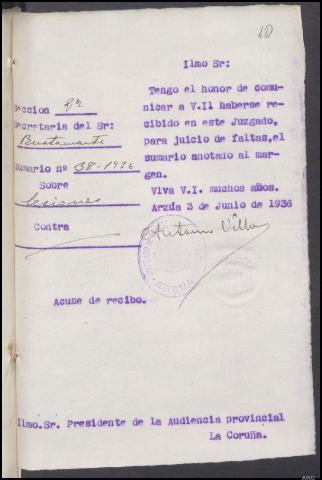 10
Ilmo Sr:
Tengo el honor de comu-
nicar a V.Il haberse re-
cibido en este Juzgado,
para juicio de faltas,el
sumario anotado al mar-
gen.
Viva V.I. muchos años.
Arzúa 3 de Junio de 1936
Antonio Villar
Seccion 2ª
Secretaria del Sr:
Bustamante
Sumario nº 38-1936
Sobre
lesiones
Contra
ARZUA
Acuse de recibo.
Ilmo.Sr. Presidente de la Audiencia provincial
La Coruña.
ARG